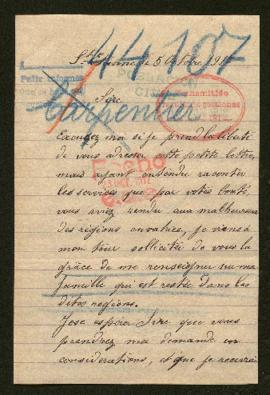 14.107
Carpentier
Sire
Excusez moi si je prend la liberté
de vous adresser cette petite lettre,
mais ayant entendu raconter
les services que par votre bonté
vous avez rendu aux malheureux
des régions envahies, je viens à
mon tour sollicité de vous la
grâce de me renseigner sur ma
famille qui est resté dans les
dites régions.
J'ose espérer Sire que vous
prendrez ma demande en
considérations, et que je recevrai